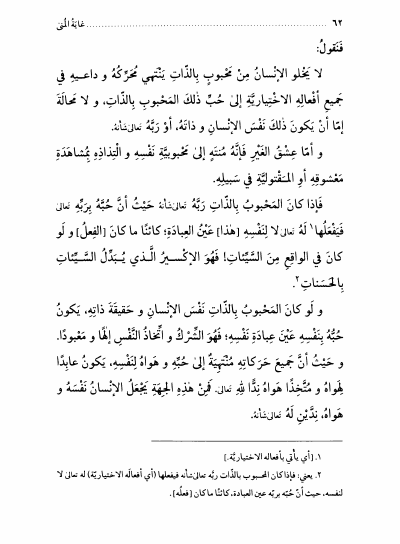 ٦٢ ........ غايَةُ المُنى
فَنَقولُ:
لا يَخْلو الإنْسانُ مِنْ مَحْبوبٍ بِالذّاتِ يَنْتَهي مُحَرِّكُهُ و داعـيهِ في
جَميعِ أفْعالِهِ الاخْتِياريَّةِ إلىٰ حُبِّ ذٰلكَ المَحْبوبِ بِالذّاتِ، و لا مَحالَةَ
إمّا أنْ يَكونَ ذٰلكَ نَفْسَ الإنْسانِ و ذاتَهُ، أوْ رَبَّهُ تعالىٰ شأنهُ.
و أمّا عِشْقُ الغَيْرِ فَإنَّهُ مُنتَهٍ إلىٰ مَحْبوبيَّةِ نَفْسِهِ و الْتِذاذِهِ بِمُشاهَدَةِ
مَعْشوقِهِ أوِ المَقْتوليَّةِ في سَبيلِهِ.
فَإذا كانَ المَحْبوبُ بِالذّاتِ رَبَّهُ تعالىٰ شأنهُ حَيْثُ أنَّ حُبَّهُ بِرَبِّهِ تعالىٰ
فَيَفْعَلُها١ لَهُ تعالىٰ لا لِنَفْسِهِ [هٰذا] عَيْنُ العِبادَةِ؛ كائنًا ما كانَ [الفِعلُ] و لَو
كانَ في الواقِعِ مِنَ السَّيِّئاتِ! فَهُوَ الإكْسـيرُ الَّـذي يُـبَدِّلُ السَّـيِّئاتِ
بِالحَسَناتِ٢.
و لَو كانَ المَحْبوبُ بِالذّاتِ نَفْسَ الإنْسانِ و حَقيقَةَ ذاتِهِ، يَكونُ
حُبُّهُ بِنَفْسِهِ عَيْنَ عِبادَةِ نَفْسِهِ؛ فَهُوَ الشِّرْكُ و اتِّخاذُ النَّفْسِ إلٰهًا و مَعْبودًا.
و حَيْثُ أنَّ جَميعَ حَرَكاتِهِ مُنْتَهيَةٌ إلىٰ حُبِّهِ و هَواهُ لِنَفْسِهِ، يَكونُ عابِدًا
لِهَواهُ و مُتَّخِذًا هَواهُ نِدًّا لِلّٰهِ تعالىٰ. فَمِنْ هٰذِهِ الجِهَةِ يَجْعَلُ الإنْسانُ نَفْسَهُ و
هَواهُ، نِدَّيْنِ لَهُ تعالىٰ شأنهُ.
١. [أي يأتي بأفعاله الاختياريّة.]
٢. يعني: فإذا كان المحبوب بالذّات ربَّه تعالىٰ شأنه فيفعلها (أي أفعالَه الاختياريّة) له تعالىٰ لا
لنفسه، حيث أنّ حُبّه بربّه عين العبادة، كائنًا ما كان [فعلُه].